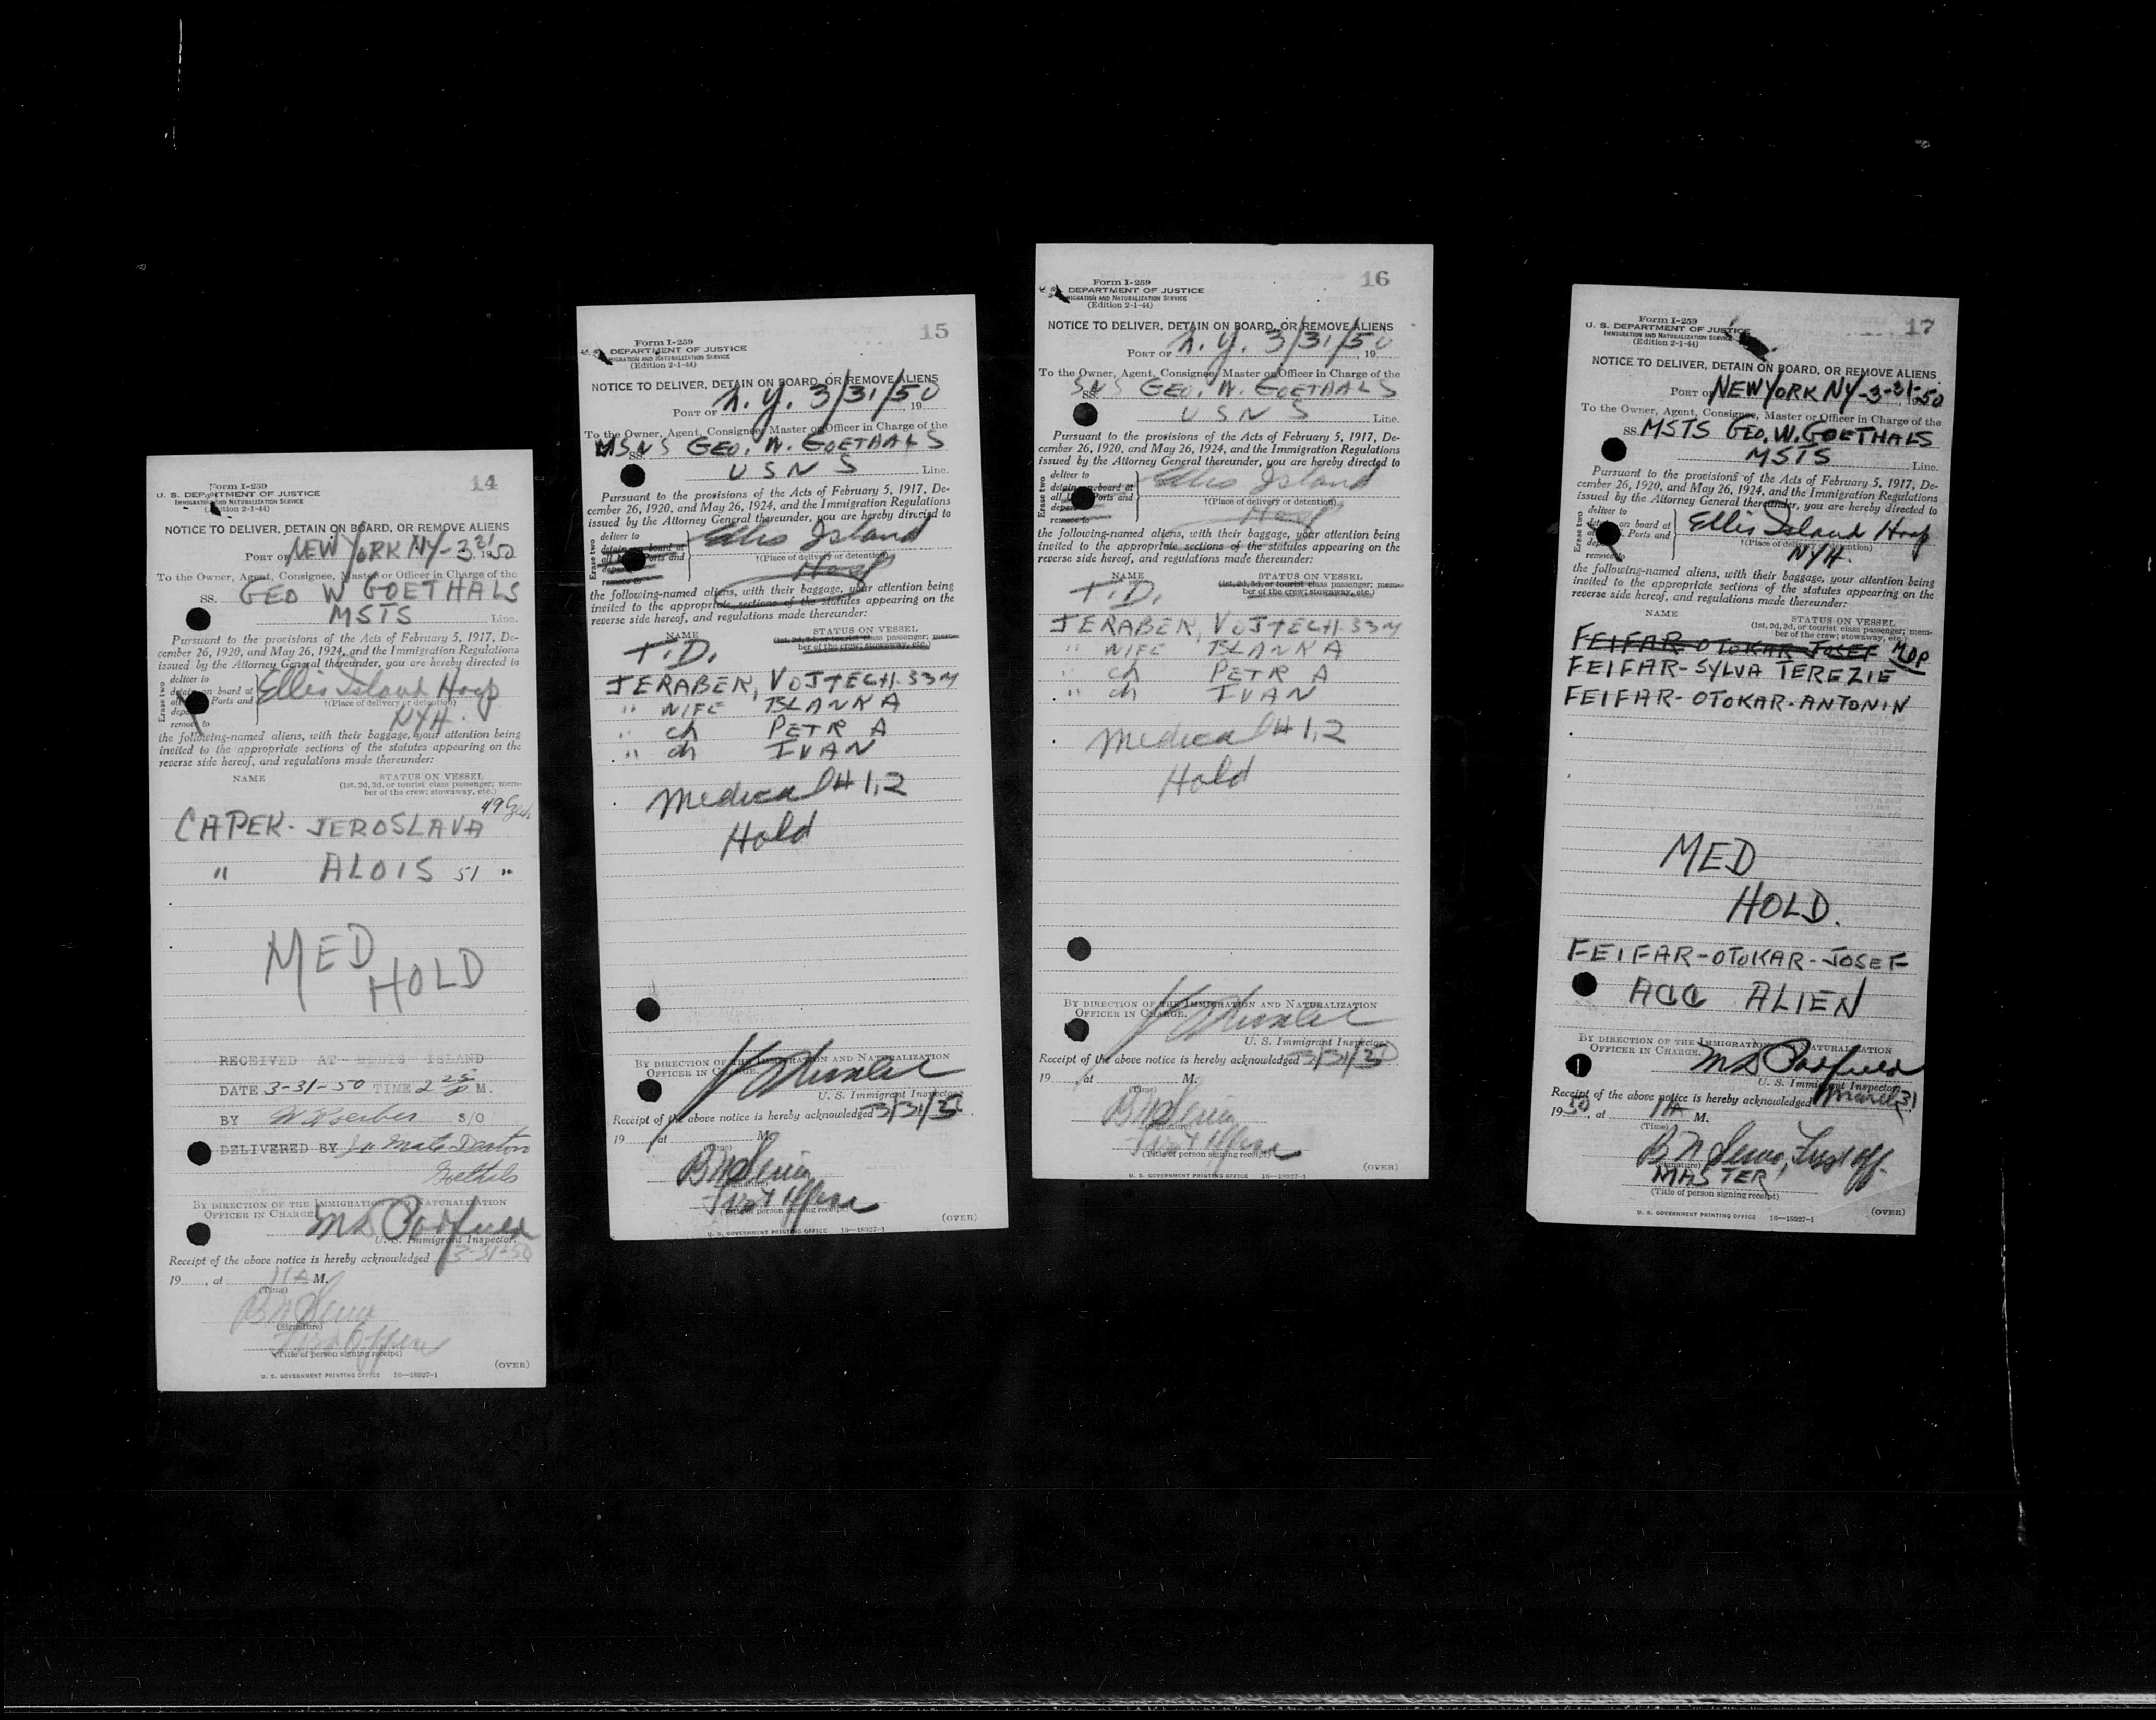 14
Form I-259
U. S. DEPARTMENT OF JUSTICE
IMMIGRATION AND NATURALIZATION SERVICE
(Edition 2-1-44)
NOTICE TO DELIVER, DETAIN ON BOARD, OR REMOVE ALIENS
PORT OF NEW YORK NY-3-31 1950
To the Owner, Agent, Consignee, Master or Officer in Charge of the
SS. GEO W GOETHALS
MSTS Line.
Pursuant to the provisions of the Acts of February 5, 1917, De-
cember 26, 1920, and May 26, 1924, and the Immigration Regulations
issued by the Attorney General thereunder, you are hereby directed to
Erase two
deliver to
detain on board at
all Ports and
remove to
Ellis Island Hosp
†(Place of delivery or detention)
NYH.
the following-named aliens, with their baggage, your attention being
invited to the appropriate sections of the statutes appearing on the
reverse side hereof, and regulations made thereunder:
NAME STATUS ON VESSEL
(1st, 2d, 3d, or tourist class passenger; mem-
ber of the crew; stowaway, etc.)
CAPEK-JEROSLAVA 49
" ALOIS 51 "
MED
HOLD
RECEIVED AT ELLIS ISLAND
DATE 3-31-50 TIME 2 25 P M.
BY W Roerber S/O
DELIVERED BY Jr. Mate
Goethals
BY DIRECTION OF THE IMMIGRATION AND NATURALIZATION
OFFICER IN CHARGE.
U. S. Immigrant Inspector.
Receipt of the above notice is hereby acknowledged 3-31-50
19 , at 11A M.
(Time)
(Signature)
First Officer
(Title of person signing receipt)
(OVER)
U. S. GOVERNMENT PRINTING OFFICE 16—18927-1
15
Form I-259
U. S. DEPARTMENT OF JUSTICE
IMMIGRATION AND NATURALIZATION SERVICE
(Edition 2-1-44)
NOTICE TO DELIVER, DETAIN ON BOARD, OR REMOVE ALIENS
PORT OF N.Y. 3/31/50, 19
To the Owner, Agent, Consignee, Master or Officer in Charge of the
SS. MSNS GEO. W. GOETHALS
USNS Line.
Pursuant to the provisions of the Acts of February 5, 1917, De-
cember 26, 1920, and May 26, 1924, and the Immigration Regulations
issued by the Attorney General thereunder, you are hereby directed to
Erase two
deliver to
detain on board at
all Ports and
remove to
Ellis Island
†(Place of delivery or detention)
Hosp
the following-named aliens, with their baggage, your attention being
invited to the appropriate sections of the statutes appearing on the
reverse side hereof, and regulations made thereunder:
NAME STATUS ON VESSEL
(1st, 2d, 3d, or tourist class passenger; mem-
ber of the crew; stowaway, etc.)
T.D.
JERABEK, VOJTECH-33M
" WIFE BLANKA
" ch PETR A
" ch IVAN
Medical # 1,2
Hold
BY DIRECTION OF THE IMMIGRATION AND NATURALIZATION
OFFICER IN CHARGE.
U. S. Immigrant Inspector.
Receipt of the above notice is hereby acknowledged 3/31/50
19 , at M.
(Time)
(Signature)
First Officer
(Title of person signing receipt)
(OVER)
U. S. GOVERNMENT PRINTING OFFICE 16—18927-1
16
Form I-259
U. S. DEPARTMENT OF JUSTICE
IMMIGRATION AND NATURALIZATION SERVICE
(Edition 2-1-44)
NOTICE TO DELIVER, DETAIN ON BOARD, OR REMOVE ALIENS
PORT OF N.Y. 3/31/50, 19
To the Owner, Agent, Consignee, Master or Officer in Charge of the
SS. SNS GEO. W. GOETHALS
USNS Line.
Pursuant to the provisions of the Acts of February 5, 1917, De-
cember 26, 1920, and May 26, 1924, and the Immigration Regulations
issued by the Attorney General thereunder, you are hereby directed to
Erase two
deliver to
detain on board at
all Ports and
remove to
Ellis Island
†(Place of delivery or detention)
Hosp
the following-named aliens, with their baggage, your attention being
invited to the appropriate sections of the statutes appearing on the
reverse side hereof, and regulations made thereunder:
NAME STATUS ON VESSEL
(1st, 2d, 3d, or tourist class passenger; mem-
ber of the crew; stowaway, etc.)
T.D.
JERABEK, VOJTECH-33M
" WIFE BLANKA
" ch PETR A
" ch IVAN
Medical # 1,2
Hold
BY DIRECTION OF THE IMMIGRATION AND NATURALIZATION
OFFICER IN CHARGE.
U. S. Immigrant Inspector.
Receipt of the above notice is hereby acknowledged 3/31/50
19 , at M.
(Time)
(Signature)
First Officer
(Title of person signing receipt)
(OVER)
U. S. GOVERNMENT PRINTING OFFICE 16—18927-1
17
Form I-259
U. S. DEPARTMENT OF JUSTICE
IMMIGRATION AND NATURALIZATION SERVICE
(Edition 2-1-44)
NOTICE TO DELIVER, DETAIN ON BOARD, OR REMOVE ALIENS
PORT OF NEW YORK NY-3-31-1950
To the Owner, Agent, Consignee, Master or Officer in Charge of the
SS. MSTS GEO. W. GOETHALS
MSTS Line.
Pursuant to the provisions of the Acts of February 5, 1917, De-
cember 26, 1920, and May 26, 1924, and the Immigration Regulations
issued by the Attorney General thereunder, you are hereby directed to
Erase two
deliver to
detain on board at
all Ports and
remove to
Ellis Island Hosp
†(Place of delivery or detention)
NYH.
the following-named aliens, with their baggage, your attention being
invited to the appropriate sections of the statutes appearing on the
reverse side hereof, and regulations made thereunder:
NAME STATUS ON VESSEL
(1st, 2d, 3d, or tourist class passenger; mem-
ber of the crew; stowaway, etc.)
FEIFAR-OTOKAR JOSEF MDP
FEIFAR-SYLVA TEREZIE
FEIFAR-OTOKAR-ANTONIN
MED
HOLD.
FEIFAR-OTOKAR-JOSEF
ACC ALIEN
BY DIRECTION OF THE IMMIGRATION AND NATURALIZATION
OFFICER IN CHARGE.
U. S. Immigrant Inspector.
Receipt of the above notice is hereby acknowledged March 31
1950, at 11A M.
(Time)
(Signature)
MASTER
(Title of person signing receipt)
(OVER)
U. S. GOVERNMENT PRINTING OFFICE 16—18927-1